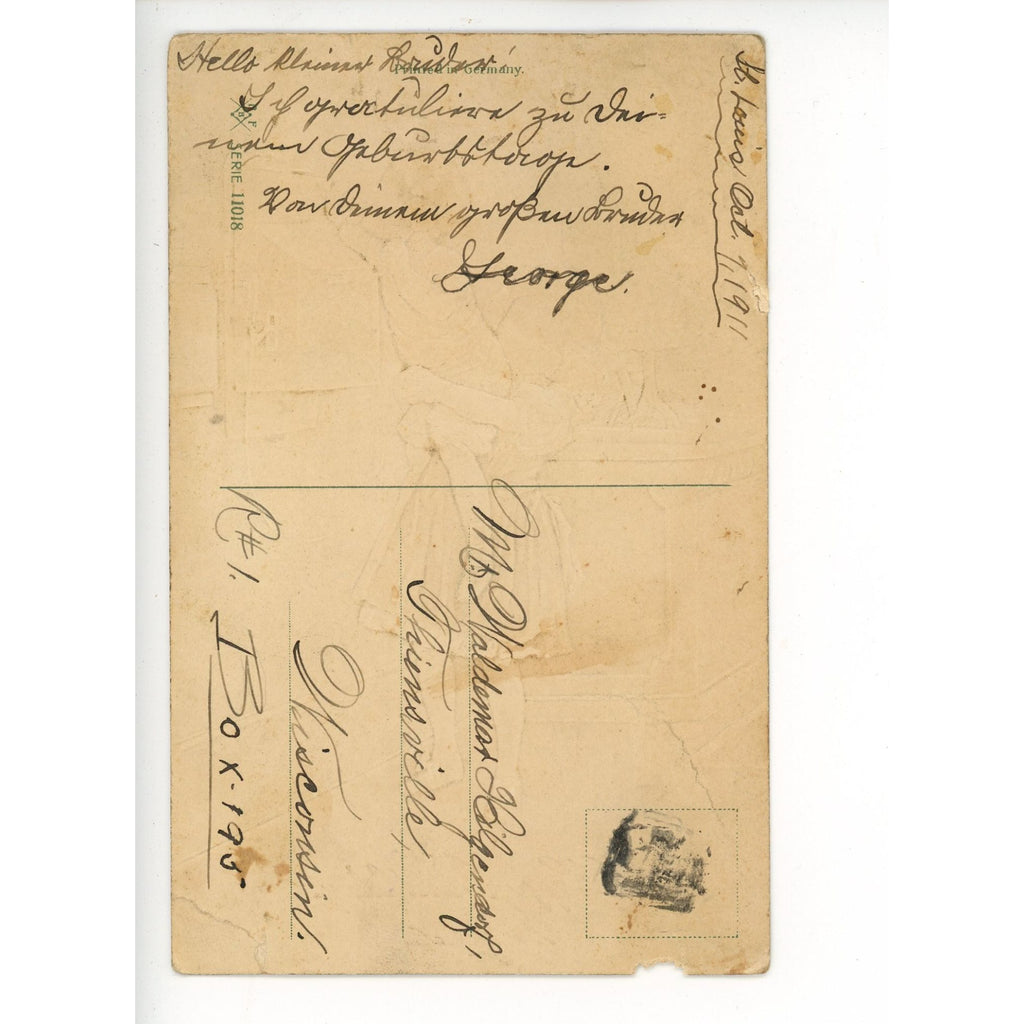 Hello kleiner Bruder!
Printed in Germany.
Ich gratuliere zu Dei=
nem Geburtstage.
Von Deinem großen Bruder
George.
St. Louis Oct. 9, 1911
SERIE 11018
Mr. Waldemar Hilgendorf,
Thiensville,
Wisconsin.
R# 1. Box-195